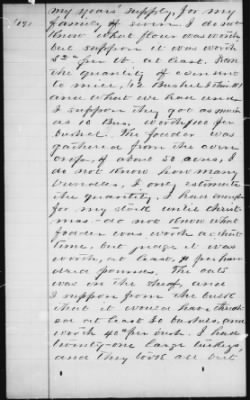 my years supply, for my
family of seven I do not
know what flour was worth
but suppose it was worth
per lb. at least. From
the quantity of
to mill, 12 Bushel
and what we had used,
I suppose they got as much
as 10 Bus. worth per
bushel. The fodder was
gathered from the corn
crop, of about 20 acres, I
do not know how many
bundles, I only estimate
the quantity, I had enough
for my stock until Christ
mas - do not know what
fodder was worth at that
time, but judge it was
worth, at least, $1 per hun
dred pounds. The oats
was in the sheaf, and
I suppose from the bulk
that it would have thrash
ed at least 30 bushels, and
worth 40cts per bush. I had
twenty-one large turkeys,
and they took all but